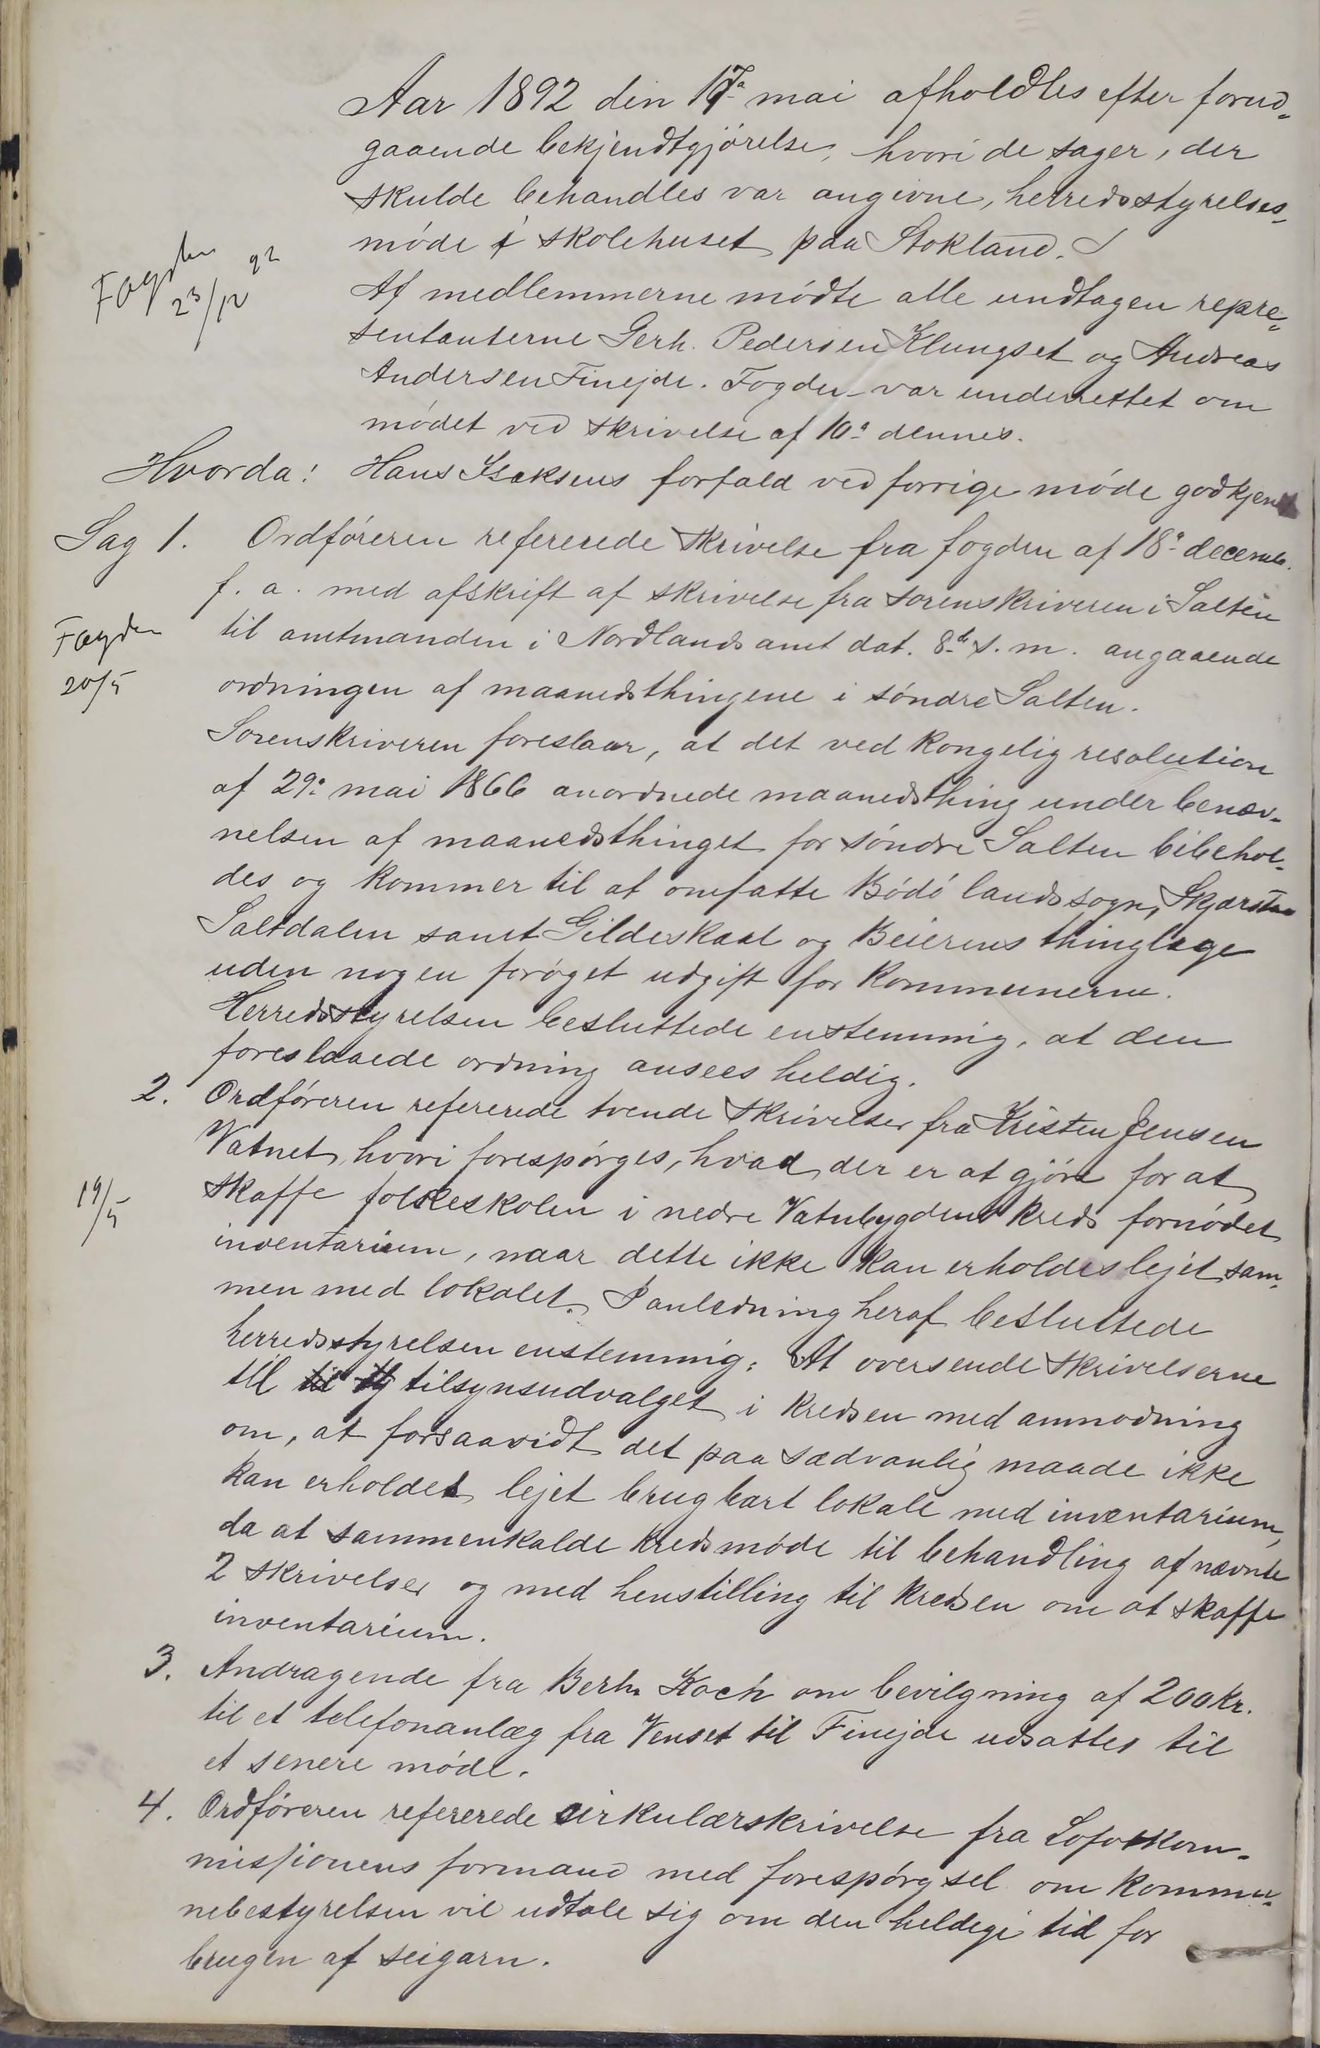 Aar 1892 den 17de mai afholdtes efter forud-
gaaende bekjendtgjørelse, hvori de sager, der
skulde behandles var angivne, herredsstyrelses-
møde i skolehuset paa Stokland.
Fogden 23/12 92
Af medlemmerne mødte alle undtagen repre-
sentanterne Gerh. Pedersen Klungset og Andreas
Andersen Finejde. Fogden var underrettet om
mødet ved skrivelse af 10de dennes.
Hvorda: Hans Isaksens forfald ved forrige møde godkjendt
Sag 1. Ordføreren refererede skrivelse fra fogden af 18de decemb.
f. a. med afskrift af skrivelse fra sorenskriveren i Salten
Fogden 20/5
til amtmanden i Nordlands amt dat. 8de s. m. angaaende
ordningen af maanedsthingene i søndre Salten.
Sorenskriveren foreslaar, at det ved kongelig resolution
af 29de mai 1866 anordnede maanedsthing under benæv-
nelsen af maanedsthinget for søndre Salten bibehol-
des og kommer til at omfatte Bodø landssogn, Skjærstad
Saltdalen samt Gildeskaal og Beierens thinglage
uden nogen forøget udgift for kommunerne.
Herredsstyrelsen besluttede enstemmig, at den
foreslaaede ordning ansees heldig.
2. Ordføreren refererede tvende skrivelser fra Kristen Jensen
Vatnet, hvori forespørges, hvad der er at gjøre for at
19/5
skaffe folkeskolen i nedre Vatnbygdens kreds fornødet
inventarium, naar dette ikke kan erholdes lejet sam-
men med lokalet. I anledning heraf besluttede
herredsstyrelsen enstemmig: At oversende skrivelserne
til til tilsynsudvalget i kredsen med anmodning
om, at forsaavidt det paa sædvanlig maade ikke
kan erholdes lejet brugbart lokale med inventarium,
da at sammenkalde kredsmøde til behandling af nævnte
2 skrivelser og med henstilling til kredsen om at skaffe
inventarium.
3. Andragende fra Bernh. Koch om bevilgning af 200 kr.
til et telefonanlæg fra Venset til Finejde udsattes til
et senere møde.
4. Ordføreren refererede cirkulærskrivelse fra Lofotkom-
missionens formand med forespørgsel om kommu-
nebestyrelsen vil udtale sig om den heldige tid for
brugen af seigarn.